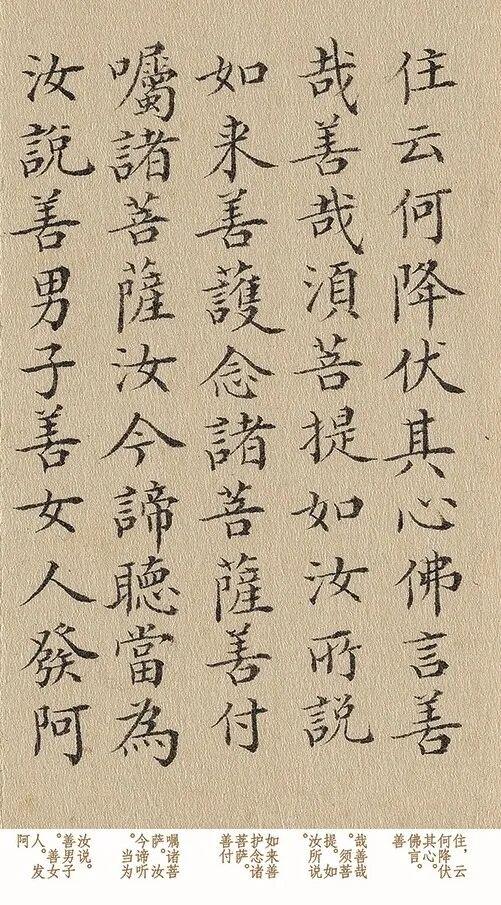 住云何降伏其心佛言善
哉善哉須菩提如汝所說
如来善護念諸菩薩善付
囑諸菩薩汝今諦聽當為
汝說善男子善女人發阿
住，云
何降伏
其心。
佛言。
善
哉善哉
。须菩
提。如
汝所说
如来善
护念诸
菩萨。
善付
嘱诸菩
萨。汝
今谛听
。当为
汝说。
善男子
。善女
人。发
阿